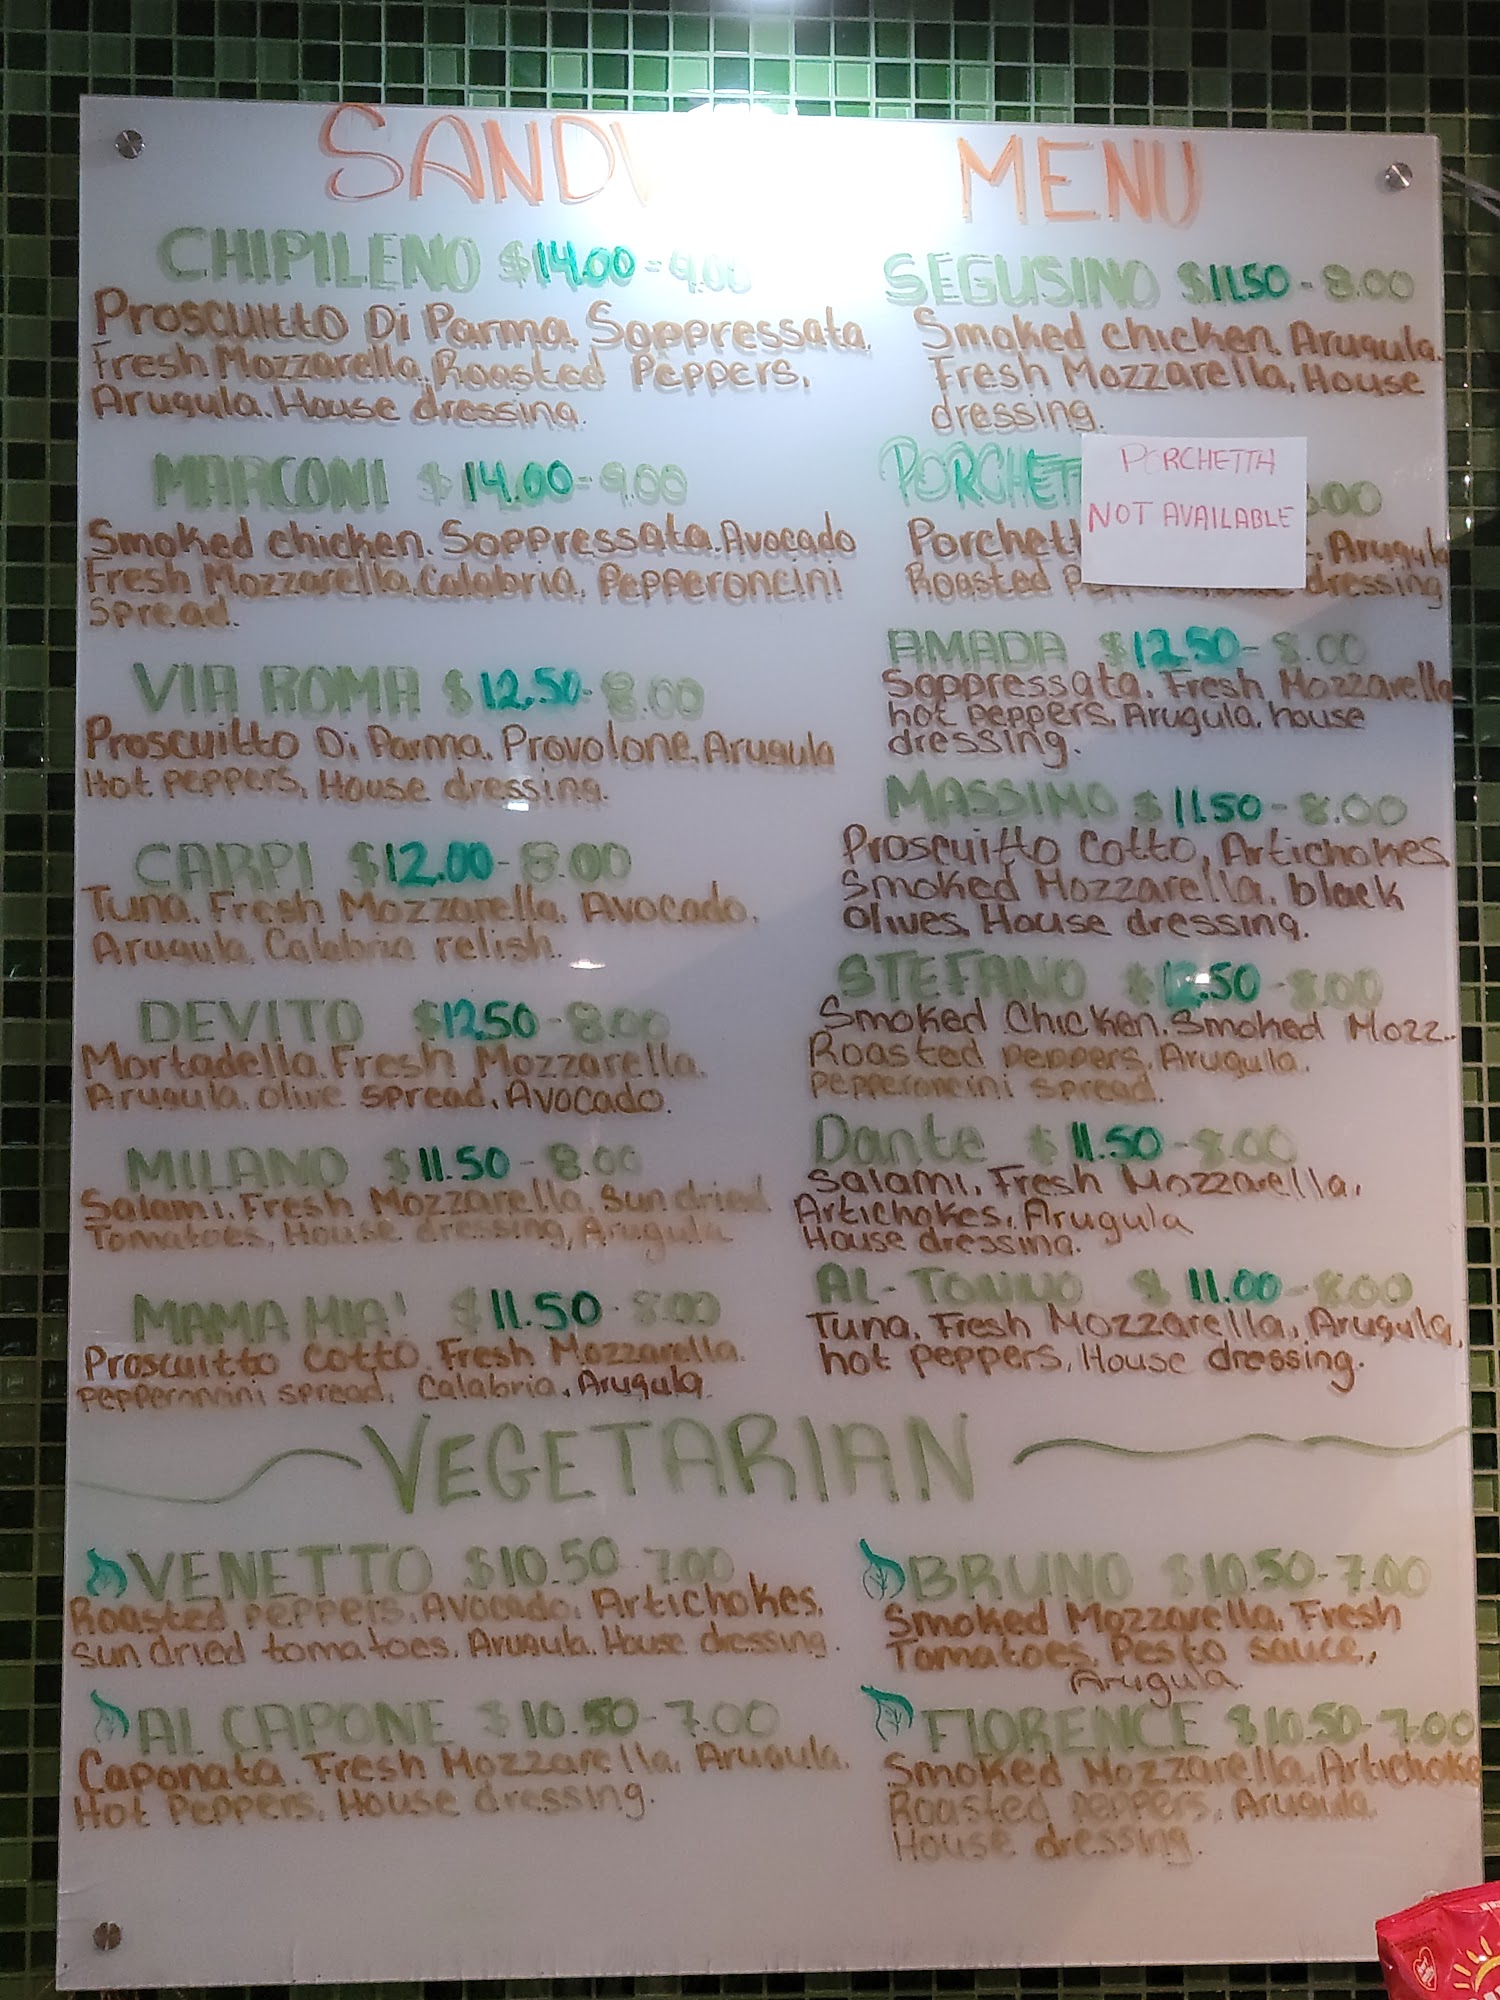 SAND MENU
CHIPILENO $14.00 - 9.00
Proscuitto Di Parma, Soppressata,
Fresh Mozzarella, Roasted Peppers,
Arugula. House dressing.
MARCONI $14.00 - 9.00
Smoked chicken. Soppressata. Avocado
Fresh Mozzarella, Calabria, Pepperoncini
Spread.
VIA ROMA $12.50 - 8.00
Proscuitto Di Parma, Provolone, Arugula
Hot peppers, House dressing.
CARPI $12.00 - 8.00
Tuna, Fresh Mozzarella, Avocado,
Arugula, Calabria relish.
DEVITO $12.50 - 8.00
Mortadella, Fresh Mozzarella,
Arugula, olive spread, Avocado.
MILANO $11.50 - 8.00
Salami, Fresh Mozzarella, Sun dried
Tomatoes, House dressing, Arugula
MAMA MIA! $11.50 - 8.00
Proscuitto Cotto, Fresh Mozzarella,
Pepperoncini spread, Calabria, Arugula
SEGUSINO $11.50 - 8.00
Smoked chicken, Arugula,
Fresh Mozzarella, House
dressing.
PORCHET .00
PORCHETTA
NOT AVAILABLE
Porchett Arugula
Roasted dressing
AMADA $12.50 - 8.00
Soppressata, Fresh Mozzarella
hot peppers, Arugula, house
dressing.
MASSIMO $11.50 - 8.00
Proscuitto Cotto, Artichokes,
Smoked Mozzarella, black
Olives, House dressing.
STEFANO $12.50 - 8.00
Smoked Chicken, Smoked Mozz..
Roasted peppers, Arugula,
pepperoncini spread.
Dante $11.50 - 8.00
Salami, Fresh Mozzarella,
Artichokes, Arugula
House dressing.
AL-TONNO $11.00 - 8.00
Tuna, Fresh Mozzarella, Arugula,
hot peppers, House dressing.
VEGETARIAN
VENETTO $10.50 7.00
Roasted peppers, Avocado, Artichokes,
Sun dried tomatoes, Arugula, House dressing.
AL CAPONE $10.50 - 7.00
Caponata, Fresh Mozzarella, Arugula,
Hot Peppers, House dressing.
BRUNO $10.50 - 7.00
Smoked Mozzarella, Fresh
Tomatoes, Pesto sauce,
Arugula
FLORENCE $10.50 - 7.00
Smoked Mozzarella, Artichoke
Roasted peppers, Arugula,
House dressing.